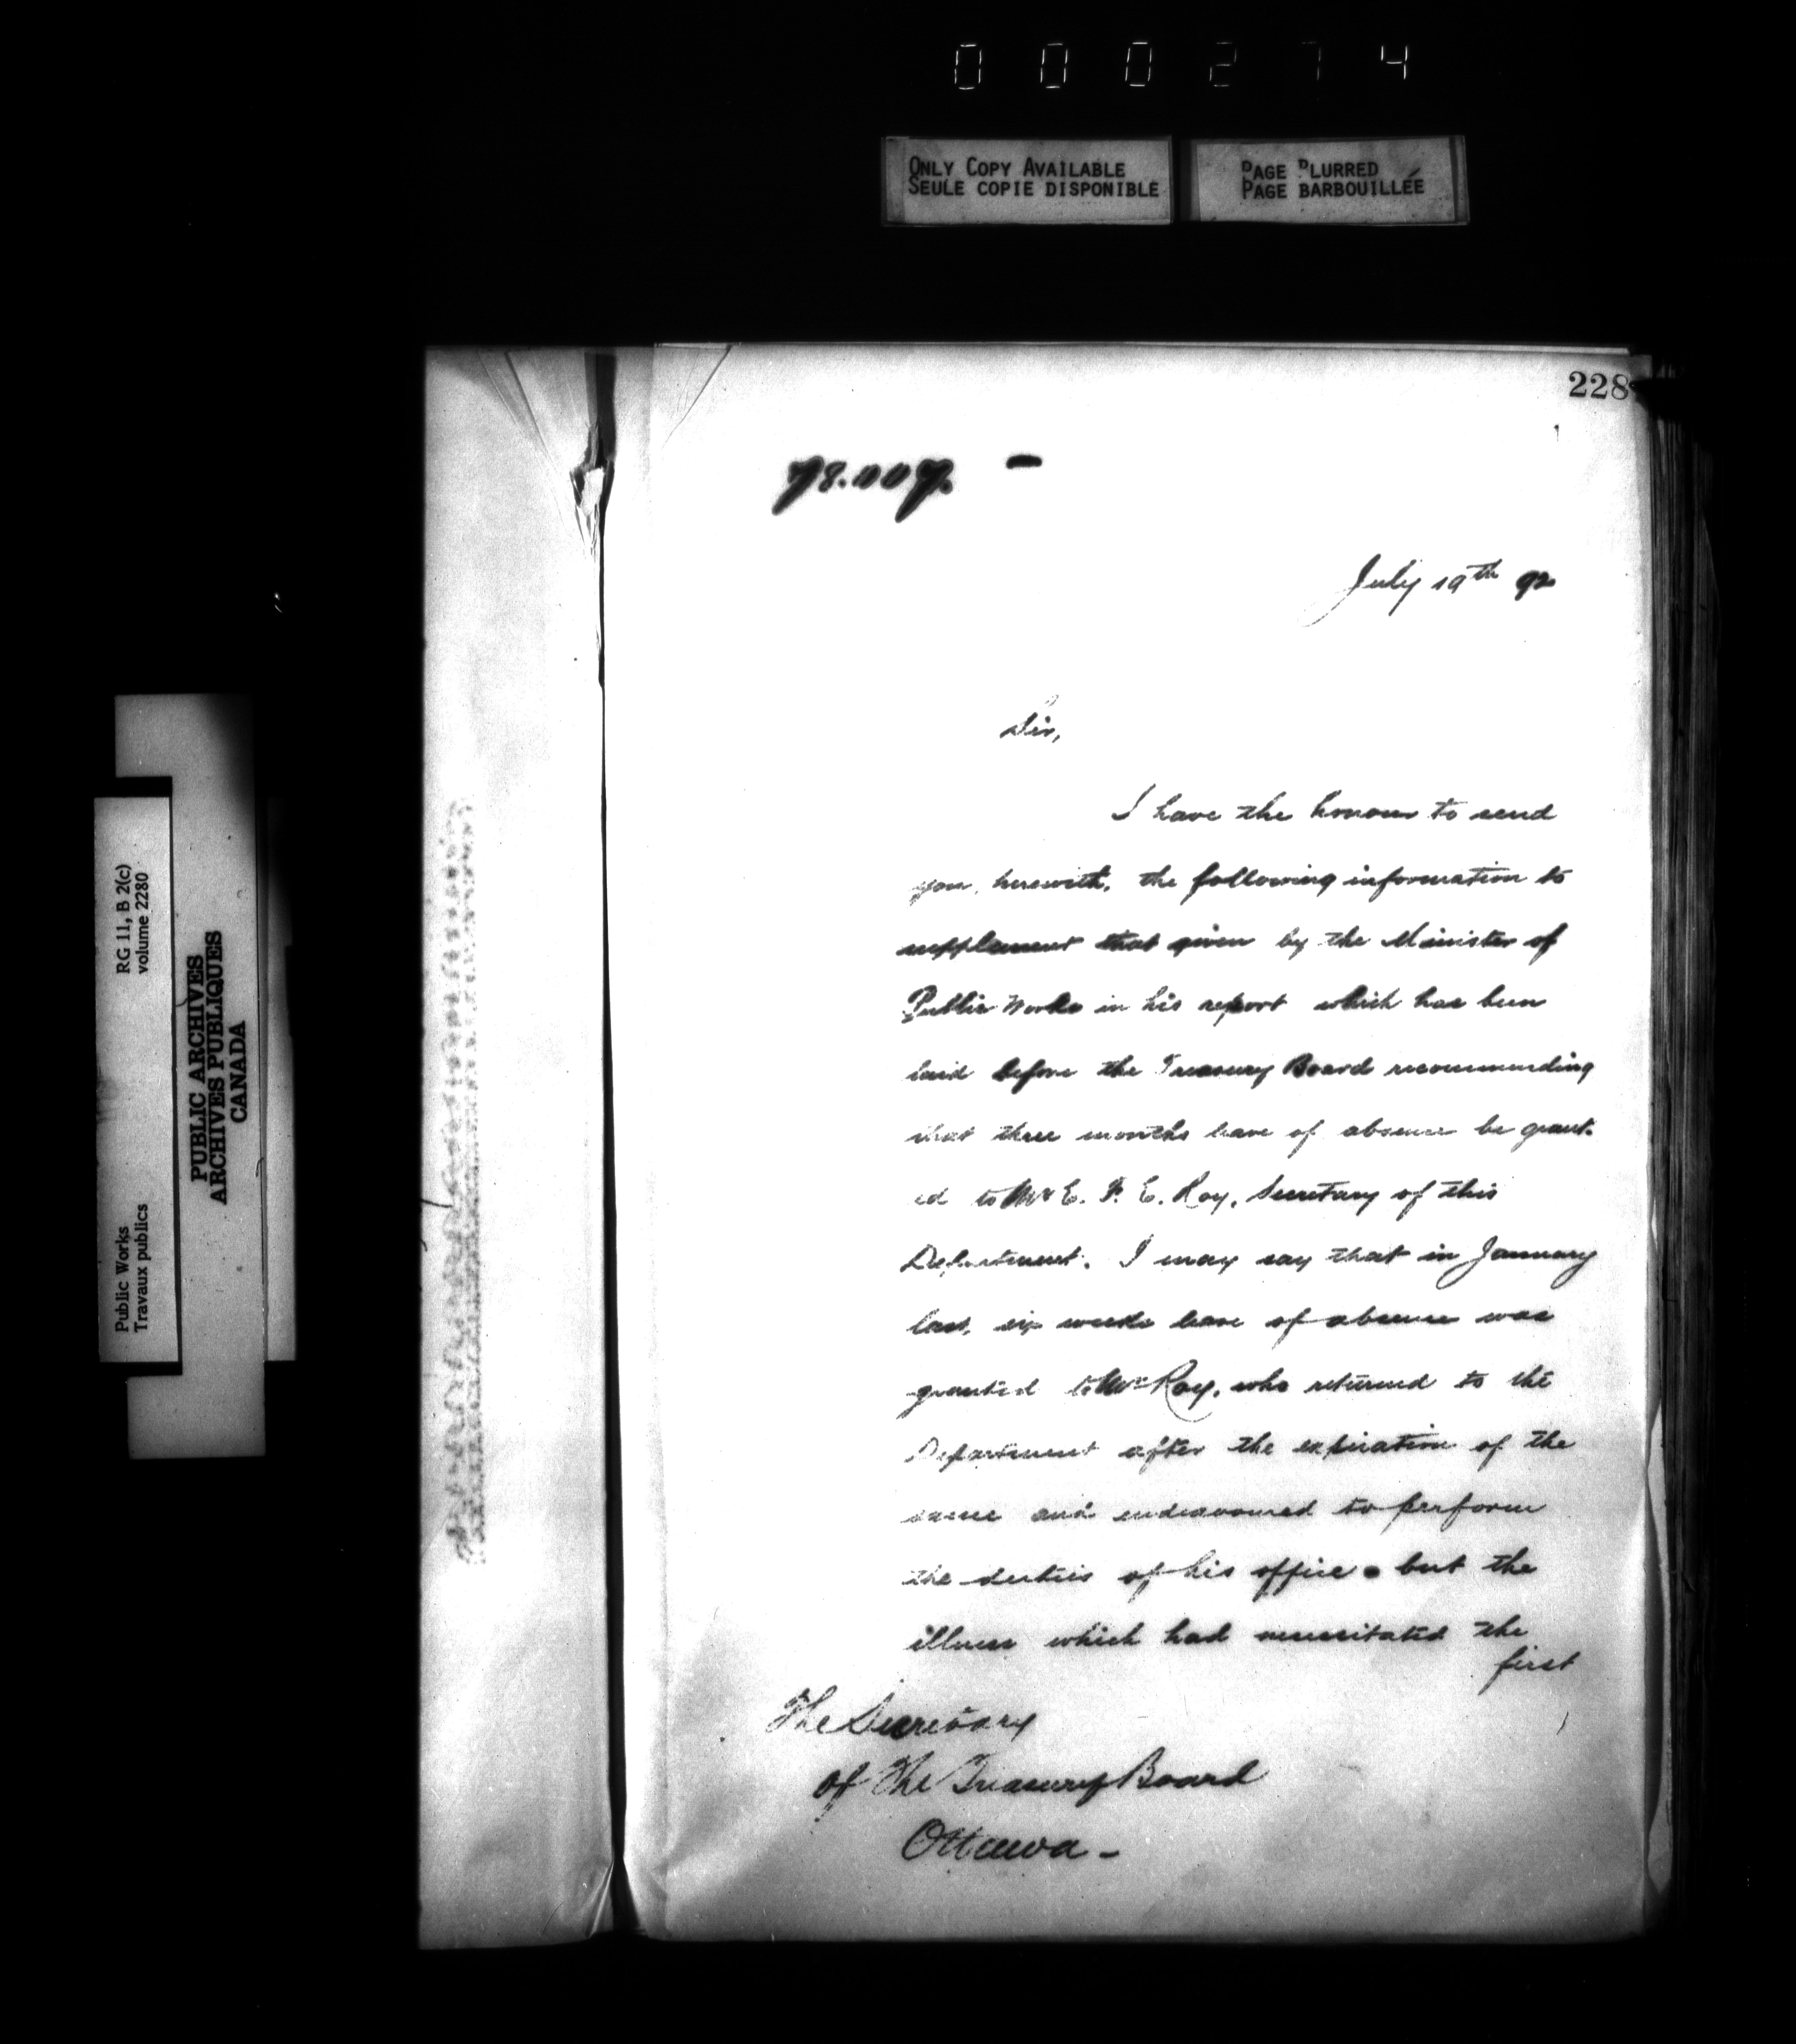 000274
ONLY COPY AVAILABLE
SEULE COPIE DISPONIBLE
PAGE BLURRED
PAGE BARBOUILLÉE
228
78.007. -
July 19th 92
Sir,
I have the honour to send
you, herewith, the following information to
supplement that given by the Minister of
Public Works in his report which has been
laid before the Treasury Board recommending
that three months leave of absence be grant-
ed to Mr E. F. E. Roy, Secretary of this
Department. I may say that in January
last, six weeks leave of absence was
granted to Mr Roy, who returned to the
Department after the expiration of the
same and endeavoured to perform
the duties of his office but the
illness which had necessitated the
first
The Secretary
of The Treasury Board
Ottawa -
RG 11, B 2(c)
volume 2280
Public Works
Travaux publics
PUBLIC ARCHIVES
ARCHIVES PUBLIQUES
CANADA